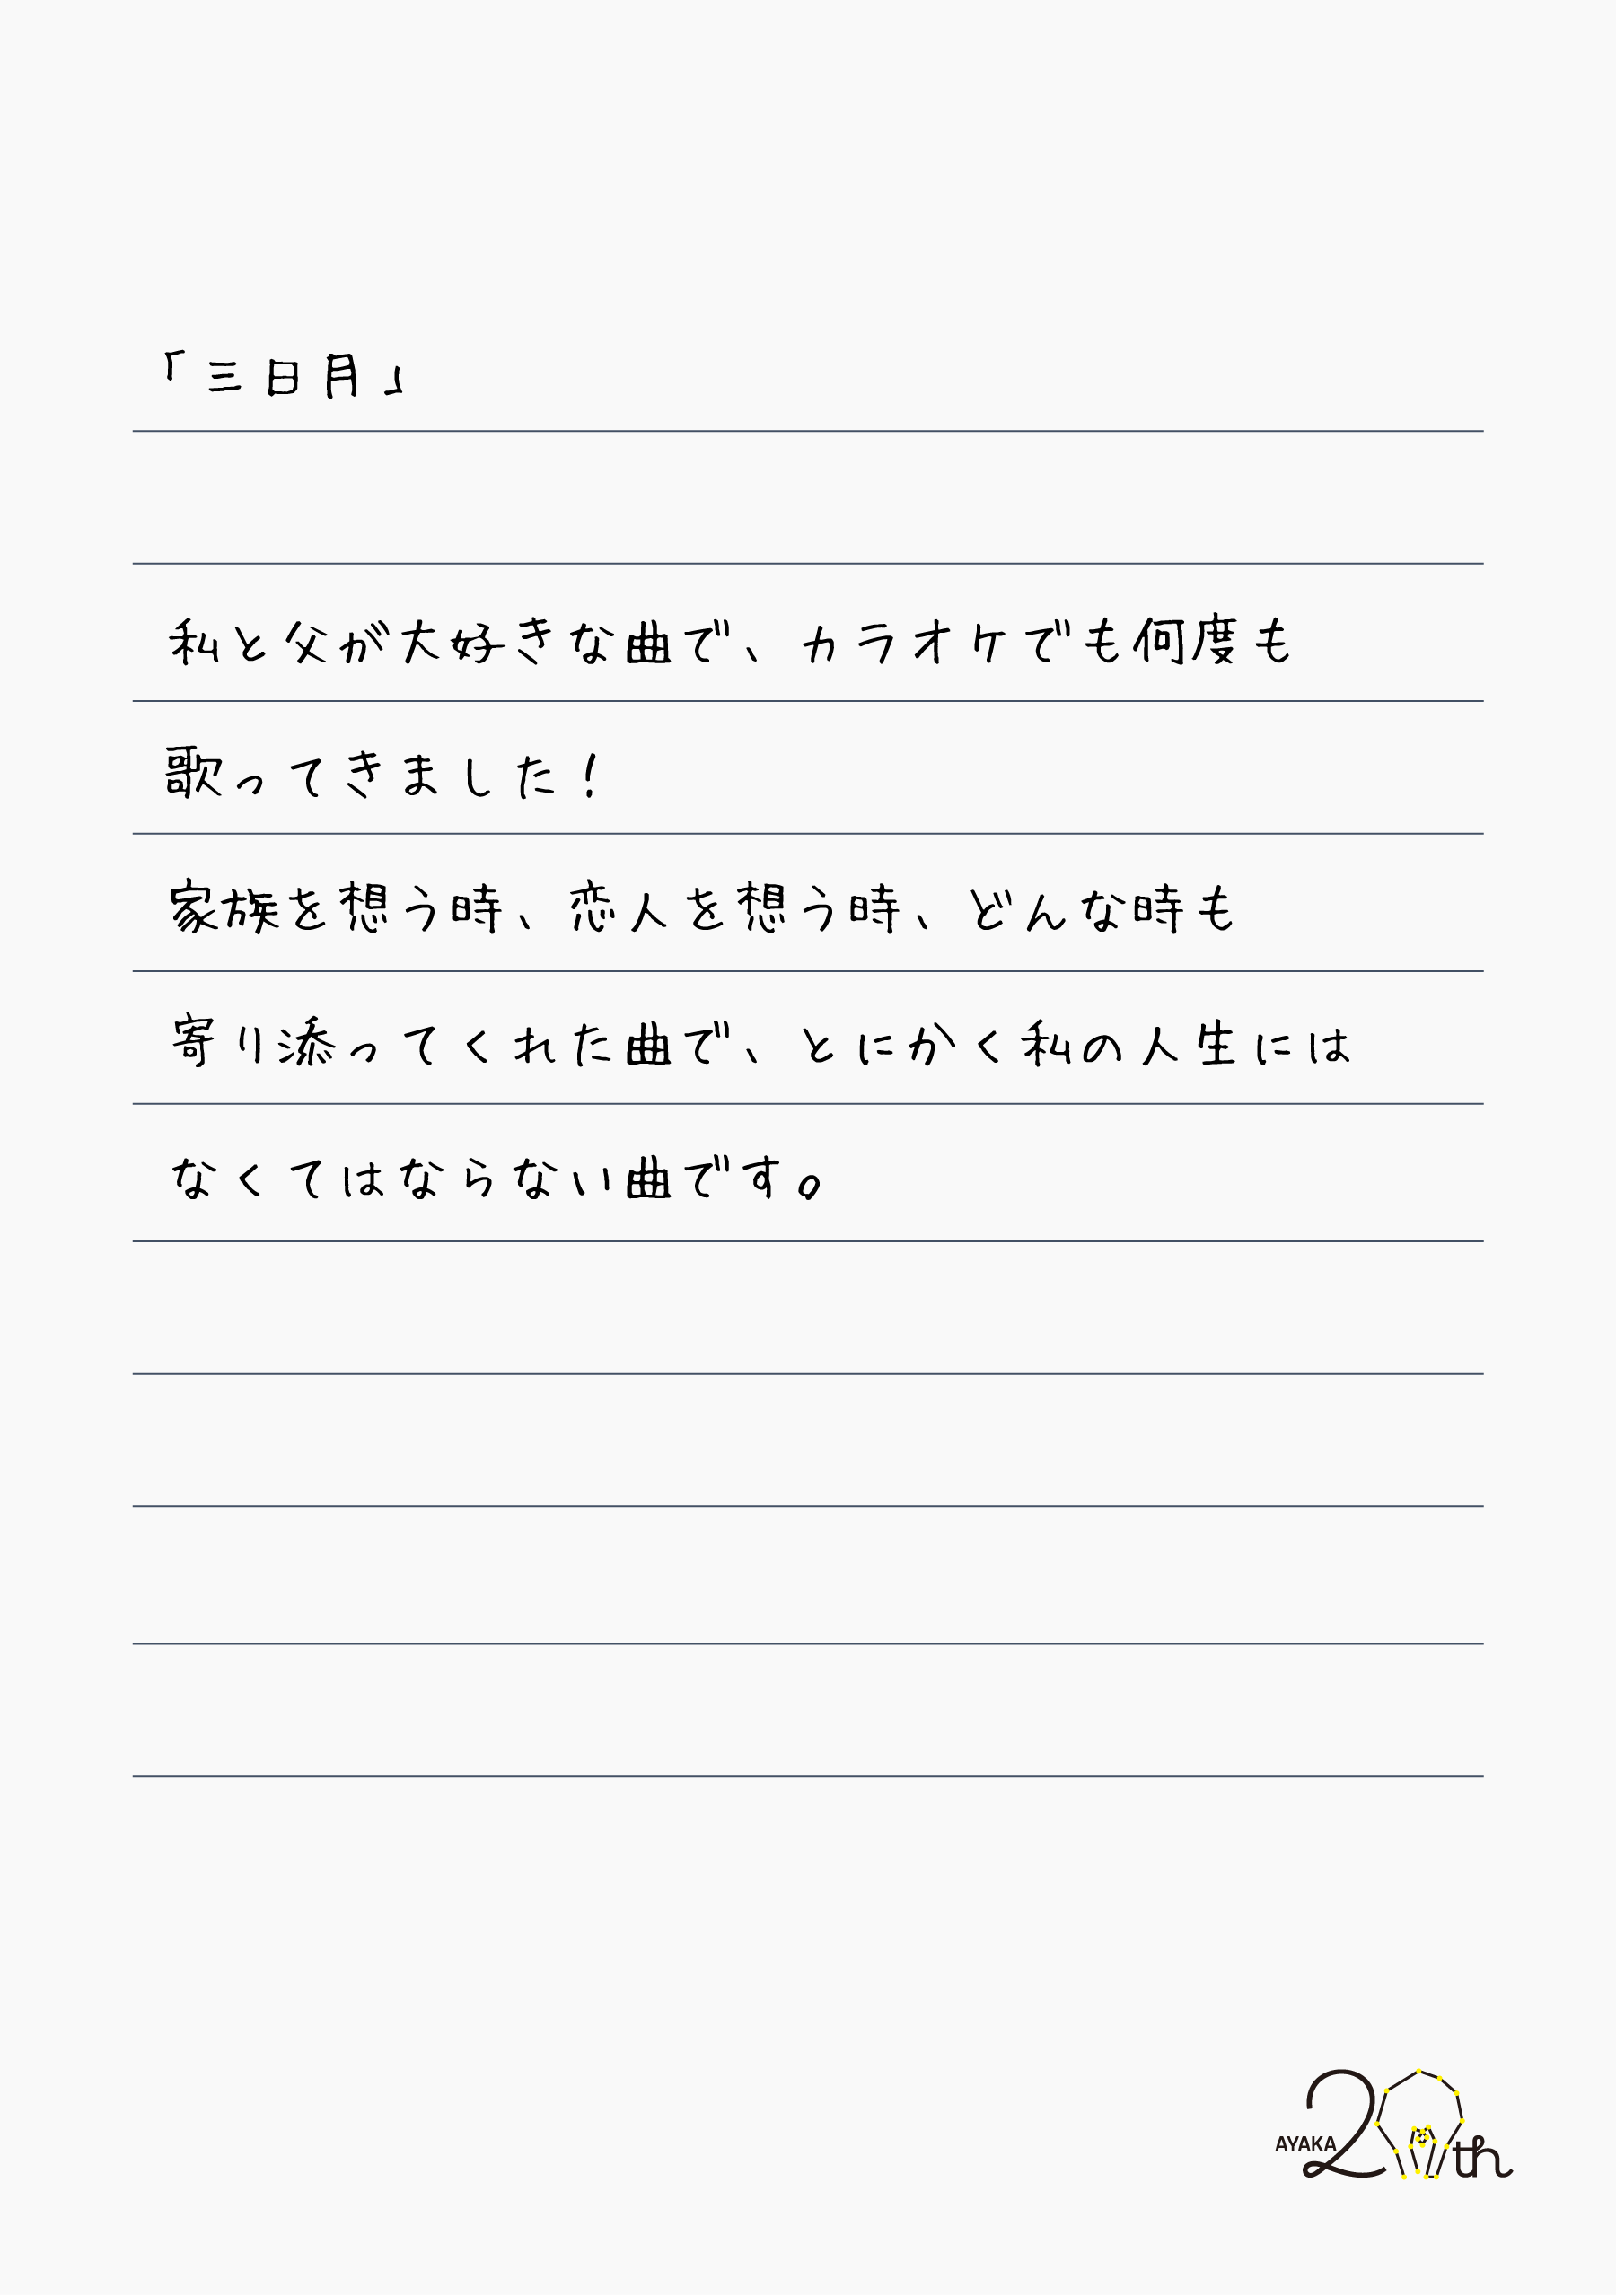 「三日月」
私と父が大好きな曲で、カラオケでも何度も
歌ってきました！
家族を想う時、恋人を想う時、どんな時も
寄り添ってくれた曲で、とにかく私の人生には
なくてはならない曲です。
AYAKA 20th